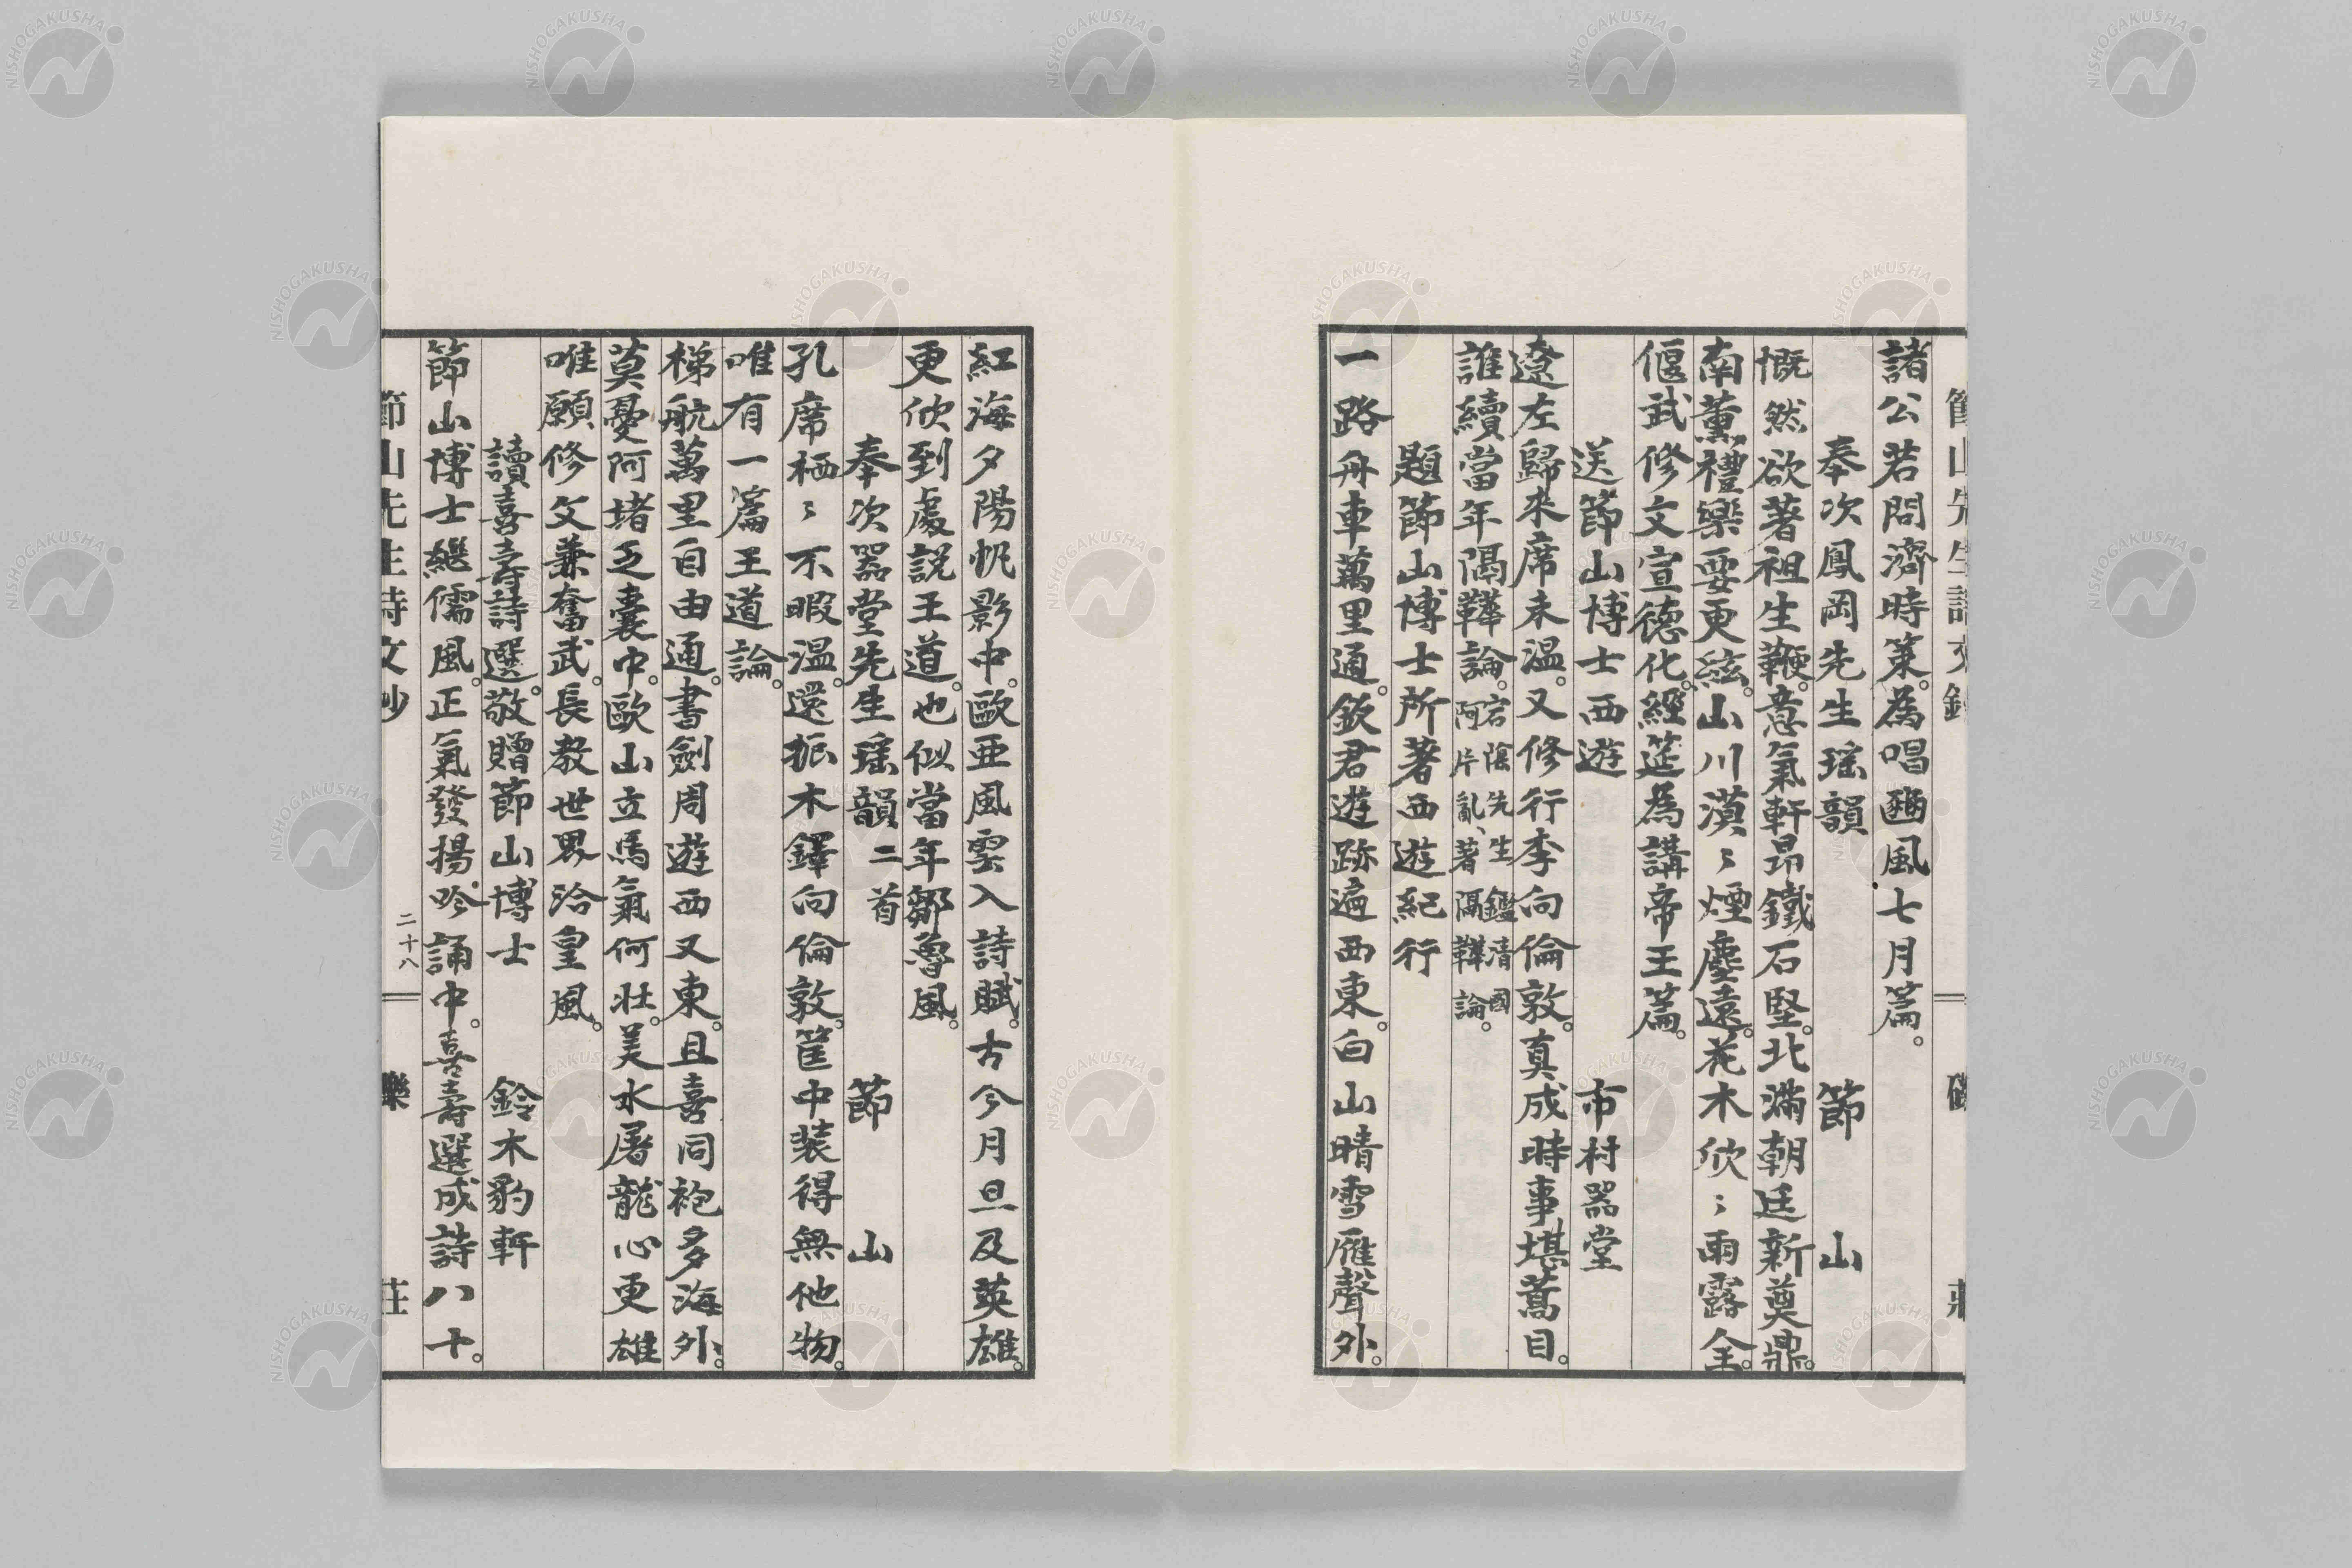 諸公若問濟時策。為唱豳風七月篇。
奉次鳳岡先生瑤韻　節山
慨然欲著祖生鞭。意氣軒昂鐵石堅。北滿朝廷新奠鼎。
南薰禮樂要更絃。山川漠〻煙塵遠。花木欣〻雨露全。
偃武修文宣德化。經筵為講帝王篇。
送節山博士西遊　市村器堂
遼左歸來席未溫。又修行李向倫敦。真成時事堪蒿目。
誰續當年隔鞾論。宕陰先生鑑清國阿片亂、著隔鞾論。
題節山博士所著西遊紀行
一路舟車萬里通。欽君遊跡遍西東。白山晴雪雁聲外。
紅海夕陽帆影中。歐亜風雲入詩賦。古今月旦及英雄。
更欣到處説王道。也似當年鄒魯風。
奉次器堂先生瑤韻二首　節山
孔席栖〻不暇溫。還振木鐸向倫敦。筐中装得無他物。
唯有一篇王道論。
梯航萬里自由通。書劍周遊西又東。且喜同袍多海外。
莫憂阿堵乏囊中。歐山立馬氣何壮。美水屠龍心更雄
唯願修文兼奮武。長教世界洽皇風。
讀喜壽詩選。敬贈節山博士　鈴木豹軒
節山博士繼儒風。正氣發揚吟誦中。喜壽選成詩八十。
節山先生詩文鈔
二十八
樂
莊
NISHOGAKUSHA